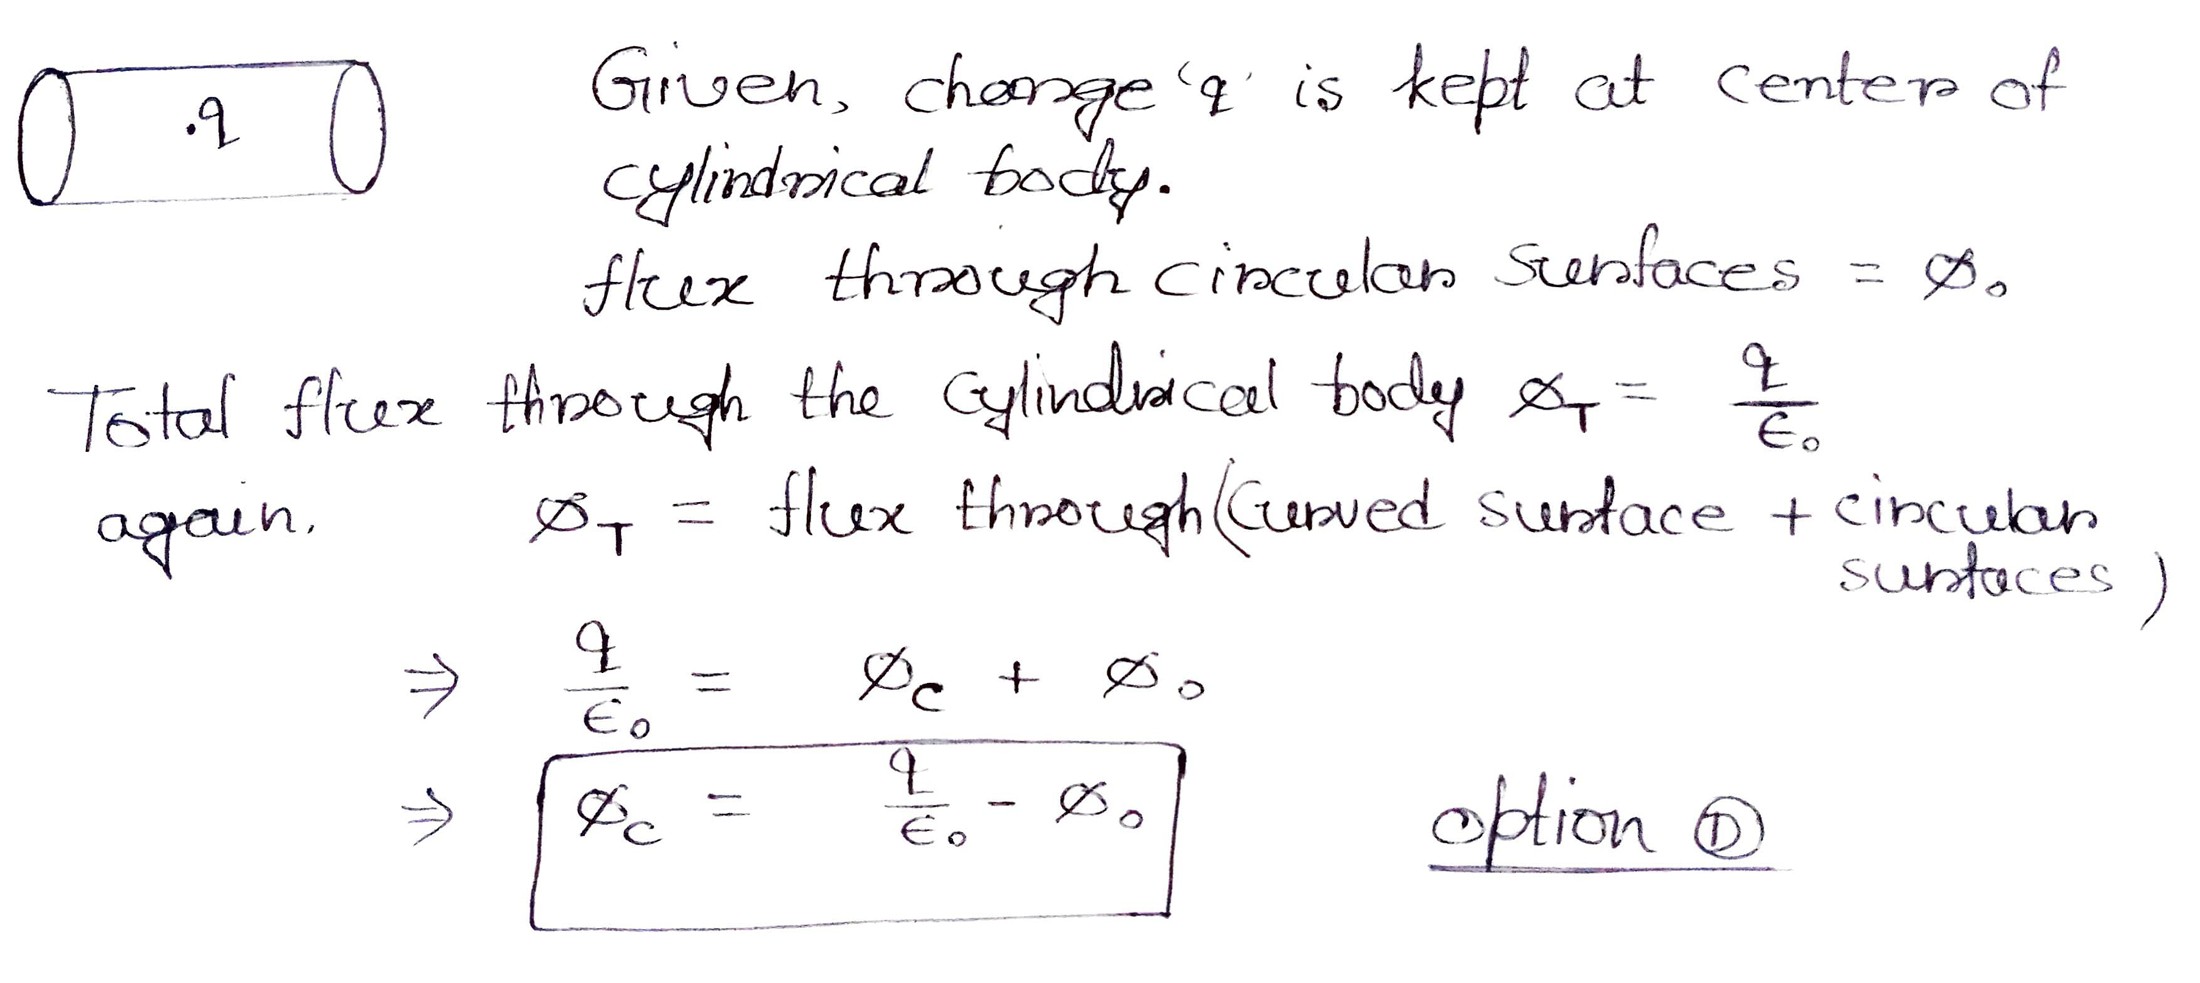 .q
Given, charge 'q' is kept at center of
cylindrical body.
flux through circular surfaces = ϕ₀
Total flux through the cylindrical body ϕ_T = q/ϵ₀
again, ϕ_T = flux through (Curved surface + circular
surfaces)
⇒ q/ϵ₀ = ϕ_C + ϕ₀
⇒ ϕ_C = q/ϵ₀ - ϕ₀
option Ⓓ